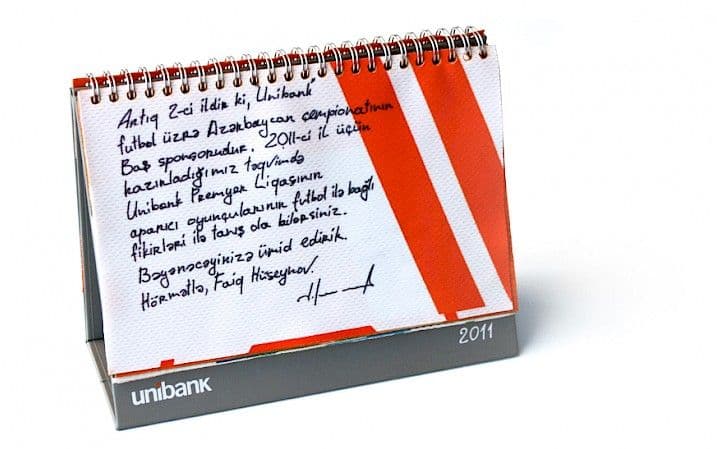 Artıq 2-ci ildir ki, "Unibank"
futbol üzrə Azərbaycan çempionatının
Baş sponsorudur. 2011-ci il üçün
hazırladığımız təqvimdə
Unibank Premyer Liqasının
aparıcı oyunçularının futbol ilə bağlı
fikirləri ilə tanış ola bilərsiniz.
Bəyənəcəyinizə ümid edirik.
Hörmətlə, Faiq Hüseynov.
2011
unibank